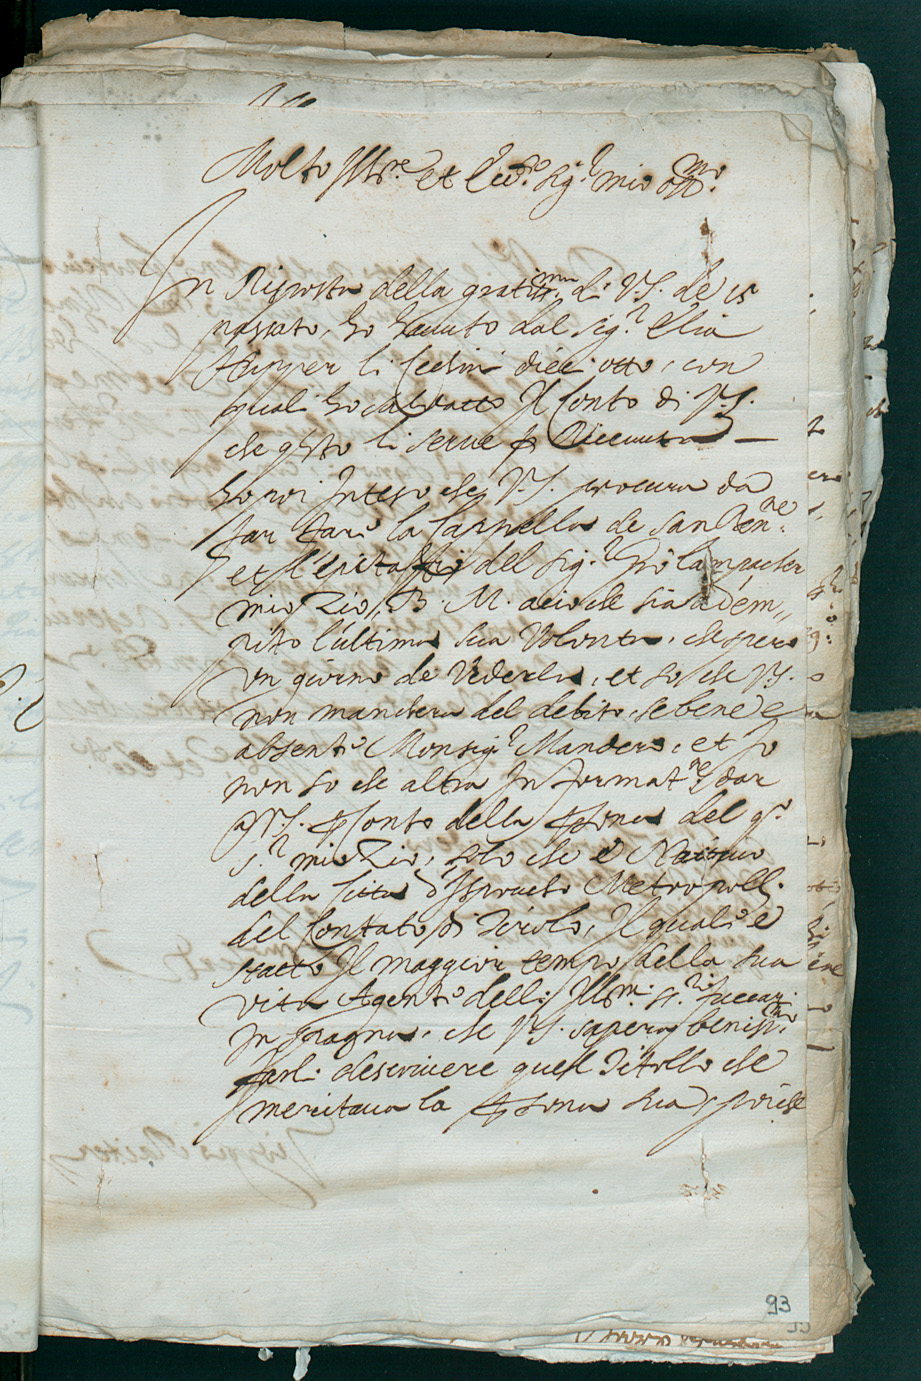 Molto Ill.re et Ecc.te Sig.r mio oss.mo
In Risposta della gratiss.ma di V.S. de 15
passato, ho hauuto dal Sig.r Elia
li Cechini dieci otto, con
quali ho saldatto Il Conto di V.S.
che q.sto li serue p Riceuuta —
ho poi Inteso che V.S. procura da
far fare la Cappella de San
et l'epitaffio del Sig.r Gio Campacher
mio Zio, B. M. acio che sia adem„
pito l'ultima sua Volonta, che spero
un giorno de Vederla, et so che V.S.
non manchera del debito, se bene e
absente Monsig.r Mandero, et Io
non so che altra Informat.ne dar
a V.S. p Conto della psona del q.
S.r mio Zio, solo che è Natiuo
della Citta d'Ispruch Metropoli
del Contato di Tirolo, Il quale è
statto Il maggior tempo della sua
vita Agente delli Ill.mi S.ri Fuccari
In Spagna, che V.S. sapera beniss.mo
farli descriuere quel Titollo che
meritaua la psona sua, poiche
93